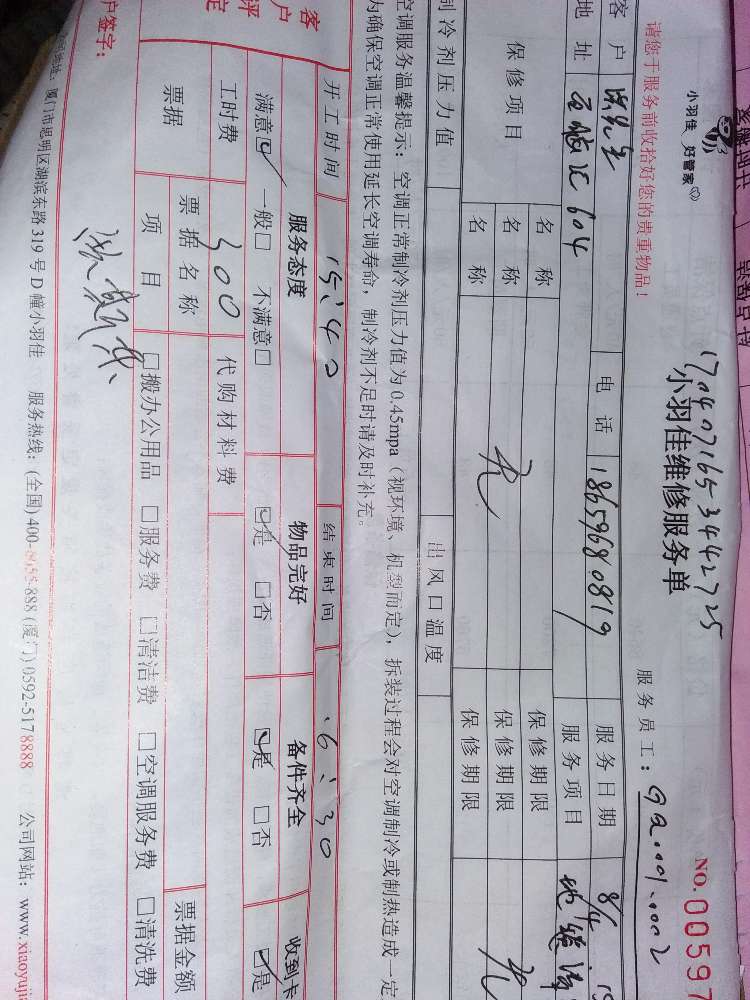 小羽佳 好管家
17040716534442725
小羽佳维修服务单
NO.00597
请您于服务前收拾好您的贵重物品！
服务员工：
客户
电话 18659680819
服务日期 8/4
地址 604
服务项目
保修项目
名称
保修期限
名称 无 保修期限 无
名称
保修期限
制冷剂压力值
出风口温度
空调服务温馨提示：空调正常制冷剂压力值为0.45mpa（视环境、机型而定），拆装过程会对空调制冷或制热造成一定
为确保空调正常使用延长空调寿命，制冷剂不足时请及时补充。
开工时间 15:40 结束时间 16:30
客户评定
服务态度 物品完好 备件齐全 收到卡
满意☑ 一般□ 不满意□ ☑是 □否 ☑是 □否 ☑是
工时费 300 代购材料费
票据
票据名称
票据金额
项目 □搬办公用品 □服务费 □清洁费 □空调服务费 □清洗费
户签字：
地址：厦门市思明区湖滨东路319号D幢小羽佳 服务热线：(全国)400-8855-888 (厦门)0592-5178888 公司网站：www.xiaoyuji